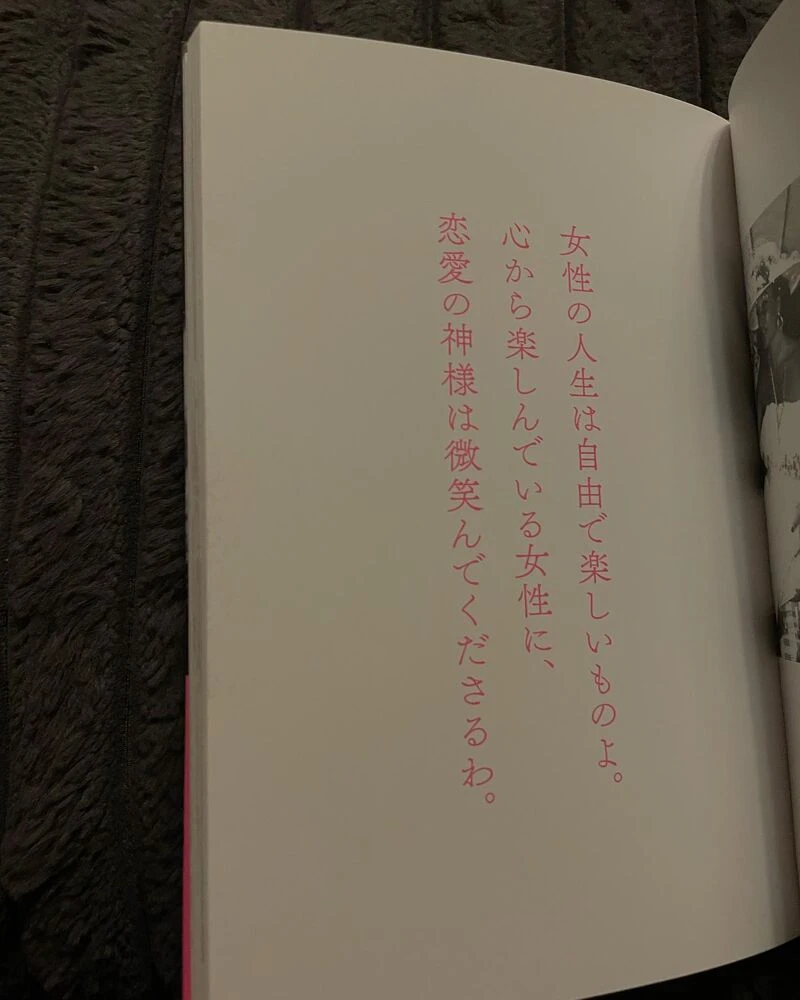 女性の人生は自由で楽しいものよ。
心から楽しんでいる女性に、
恋愛の神様は微笑んでくださるわ。